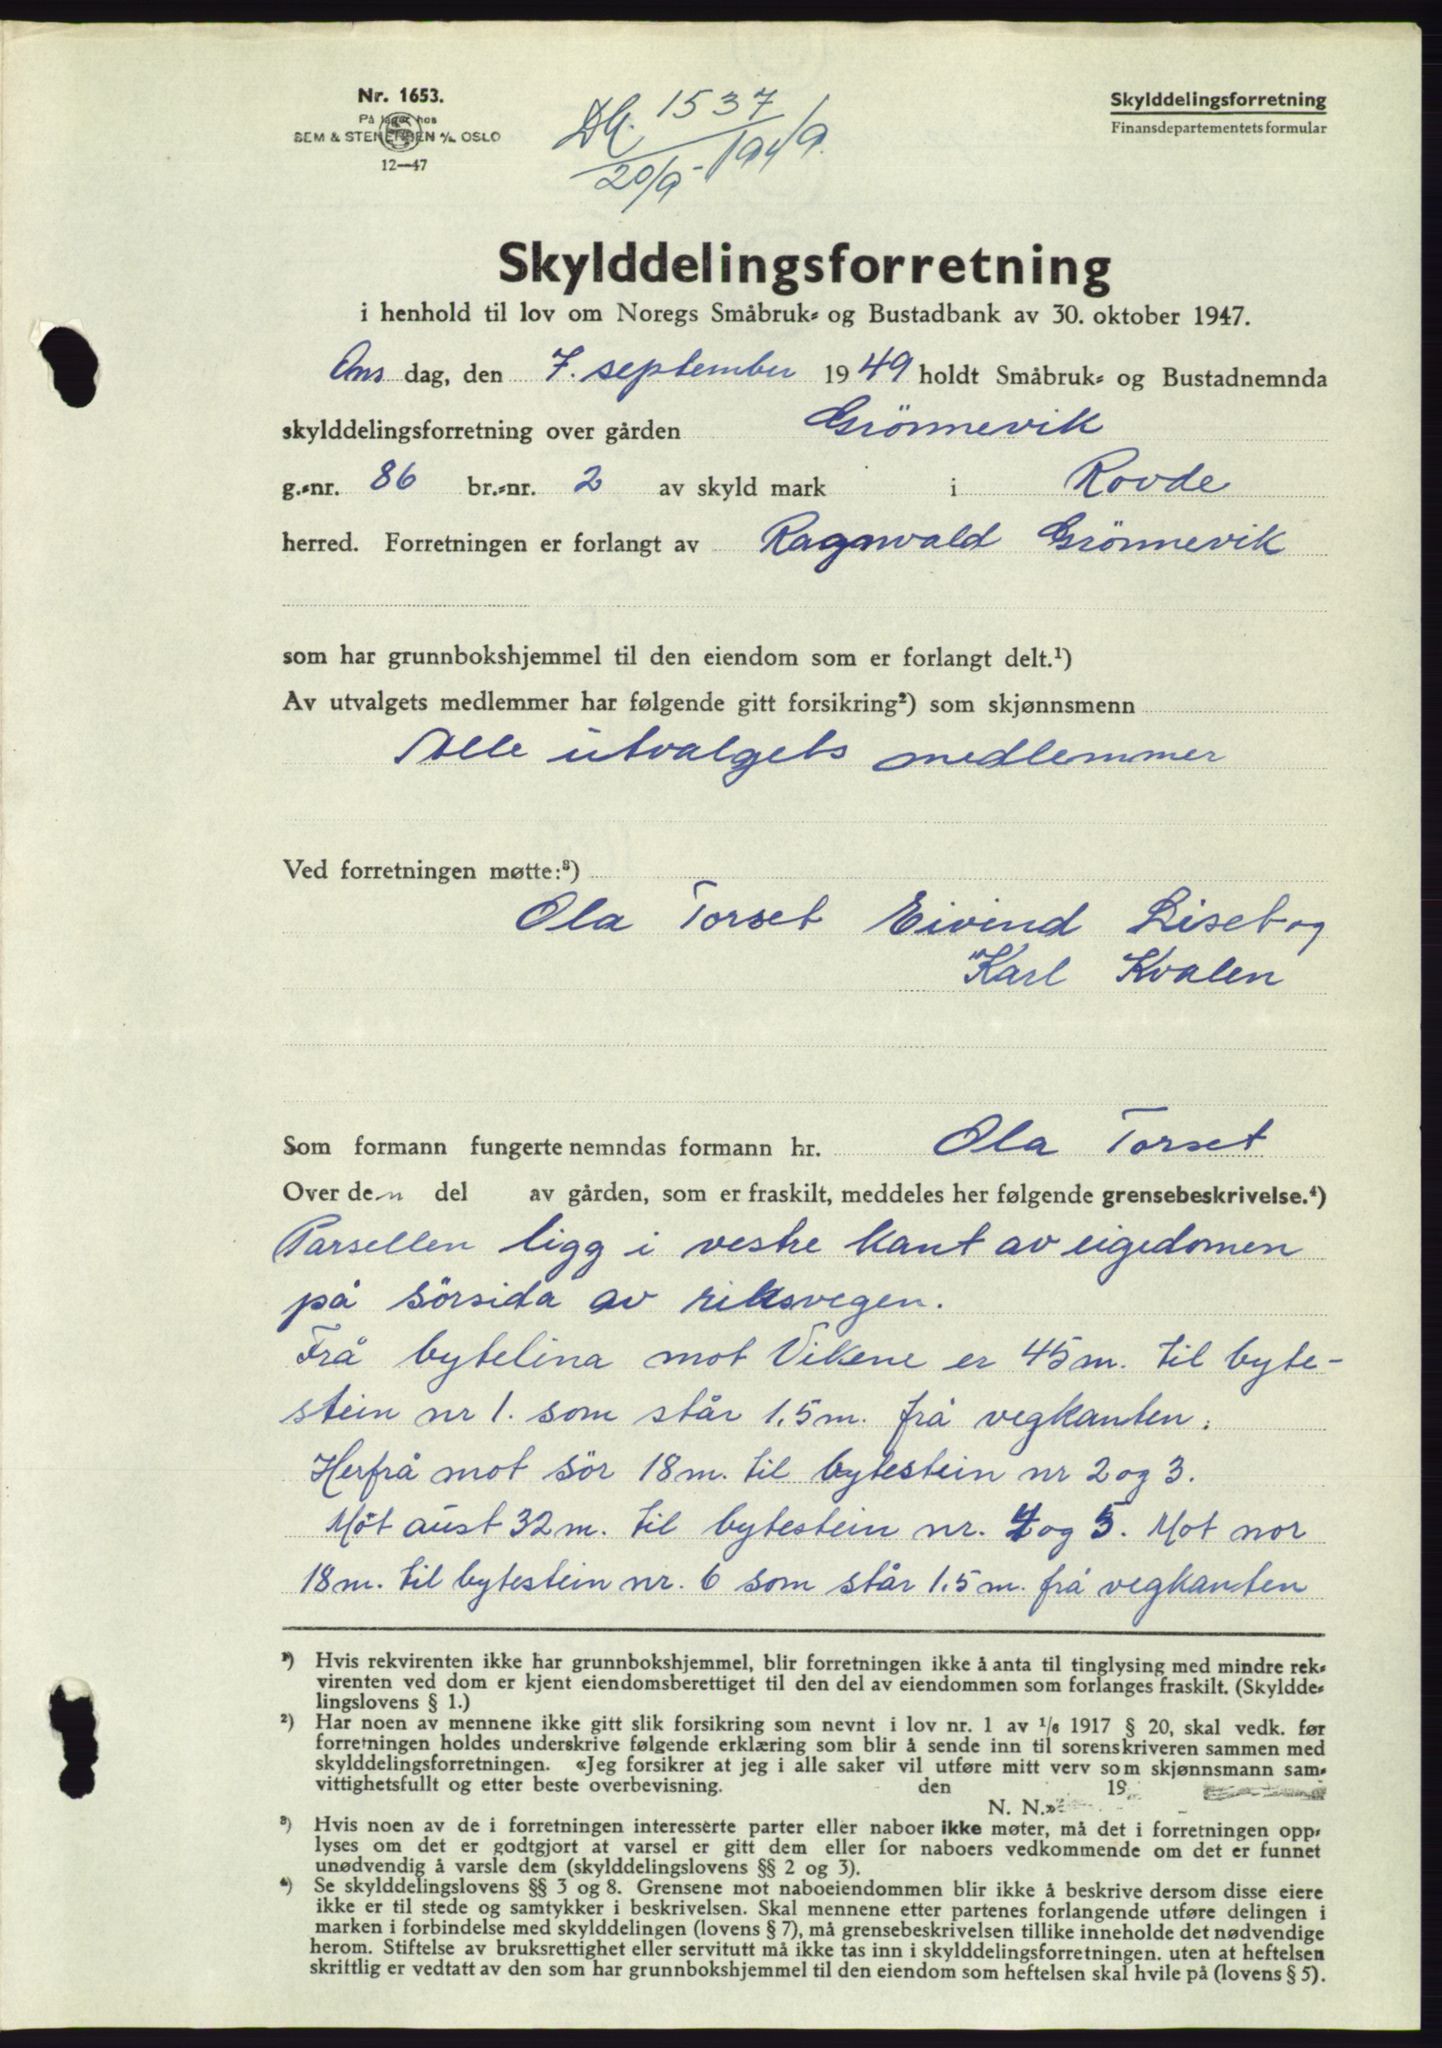 Nr. 1653.
På lager hos
SEM & STENERSEN A/S OSLO
12—47
Db. 1537
20/9-1949.
Skylddelingsforretning
Finansdepartementets formular
Skylddelingsforretning
i henhold til lov om Noregs Småbruk- og Bustadbank av 30. oktober 1947.
Ons dag, den 7. september 1949 holdt Småbruk- og Bustadnemnda
skylddelingsforretning over gården Grönnevik
g.-nr. 86 br.-nr. 2 av skyld mark i Rovde
herred. Forretningen er forlangt av Ragnvald Grönnevik
som har grunnbokshjemmel til den eiendom som er forlangt delt.¹)
Av utvalgets medlemmer har følgende gitt forsikring²) som skjønnsmenn
Alle utvalgets medlemmer
Ved forretningen møtte:³)
Ola Torset Eivind Liset og
Karl Kvalen
Som formann fungerte nemndas formann hr. Ola Torset
Over den del av gården, som er fraskilt, meddeles her følgende grensebeskrivelse.⁴)
Parsellen ligg i vestre kant av eigedomen
på sörsida av riksvegen.
Frå bytelina mot Vikene er 45 m. til byte-
stein nr 1. som står 1,5 m. frå vegkanten.
Herfrå mot sör 18 m. til bytestein nr 2 og 3.
Mot aust 32 m. til bytestein nr. 4 og 5. Mot nor
18 m. til bytestein nr. 6 som står 1.5 m. frå vegkanten
¹) Hvis rekvirenten ikke har grunnbokshjemmel, blir forretningen ikke å anta til tinglysing med mindre rek-
virenten ved dom er kjent eiendomsberettiget til den del av eiendommen som forlanges fraskilt. (Skyldde-
lingslovens § 1.)
²) Har noen av mennene ikke gitt slik forsikring som nevnt i lov nr. 1 av 1/6 1917 § 20, skal vedk. før
forretningen holdes underskrive følgende erklæring som blir å sende inn til sorenskriveren sammen med
skylddelingsforretningen. «Jeg forsikrer at jeg i alle saker vil utføre mitt verv som skjønnsmann sam-
vittighetsfullt og etter beste overbevisning. den 19
N. N.»
³) Hvis noen av de i forretningen interesserte parter eller naboer ikke møter, må det i forretningen opp-
lyses om det er godtgjort at varsel er gitt dem eller for naboers vedkommende om det er funnet
unødvendig å varsle dem (skylddelingslovens §§ 2 og 3).
⁴) Se skylddelingslovens §§ 3 og 8. Grensene mot naboeiendommen blir ikke å beskrive dersom disse eiere
ikke er til stede og samtykker i beskrivelsen. Skal mennene etter partenes forlangende utføre delingen i
marken i forbindelse med skylddelingen (lovens § 7), må grensebeskrivelsen tillike inneholde det nødvendige
herom. Stiftelse av bruksrettighet eller servitutt må ikke tas inn i skylddelingsforretningen. uten at heftelsen
skriftlig er vedtatt av den som har grunnbokshjemmel til den eiendom som heftelsen skal hvile på (lovens § 5).